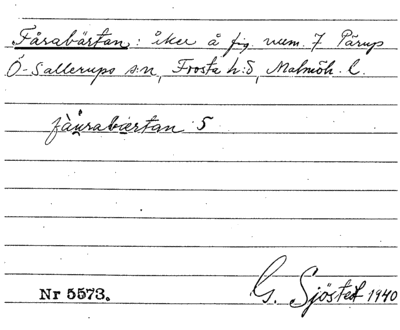 Fårabärtan: åker å fig. num. 7 Pärup
Ö-Sallerups s:n, Frosta h:d, Malmöh. l.
fåurabærtan 5
Nr 5573.
G. Sjöstedt 1940